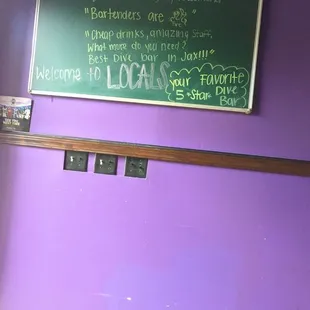 "Bartenders are
"Cheap drinks, amazing staff,
What more do you need?
Best Dive bar in Jax!!!"
Welcome to LOCALS
your Favorite
5 Star Dive
Bar